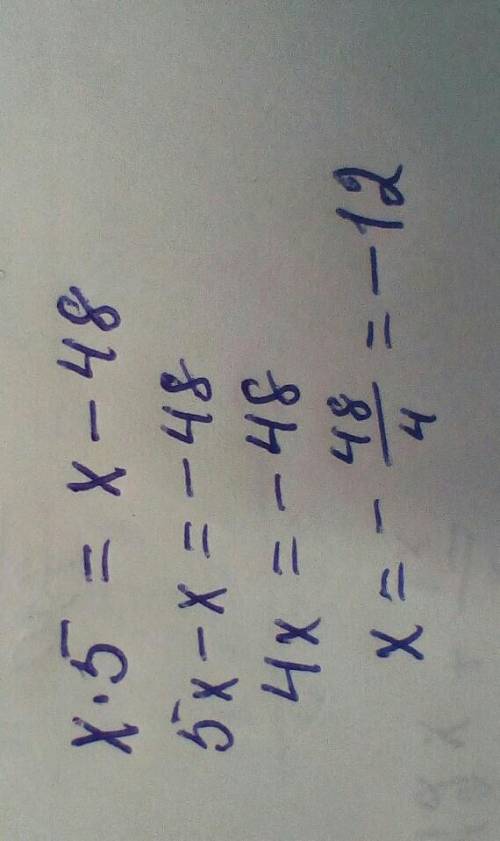 x·5 = x - 48
5x - x = - 48
4x = - 48
x = - 48/4 = - 12